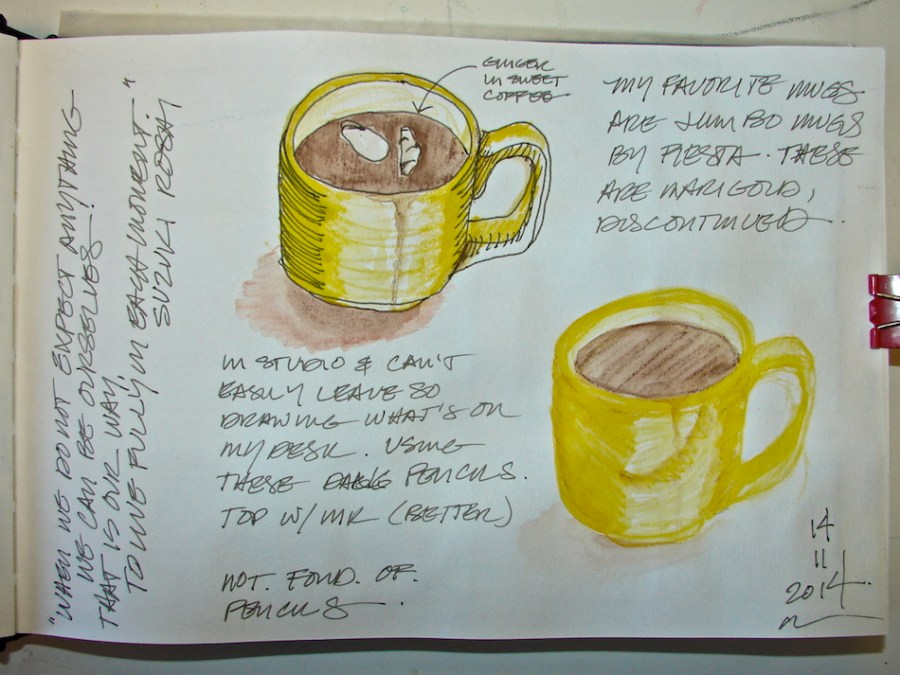 "WHEN WE DO NOT EXPECT ANYTHING
WE CAN BE OURSELVES!
THAT IS OUR WAY,
TO LIVE FULLY IN EACH MOMENT."
SUZUKI ROSHI
GINGER
IN SWEET
COFFEE
MY FAVORITE MUGS
ARE JUMBO MUGS
BY FIESTA. THESE
ARE MARIGOLD,
DISCONTINUED.
IN STUDIO & CAN'T
EASILY LEAVE SO
DRAWING WHAT'S ON
MY DESK. USING
THESE PENCILS.
TOP W/INK (BETTER)
NOT. FOND. OF.
PENCILS.
14
11
2014